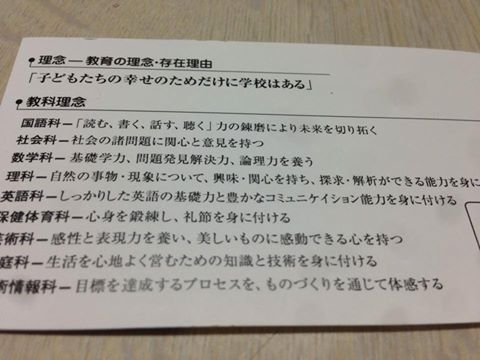 理念 ― 教育の理念・存在理由
「子どもたちの幸せのためだけに学校はある」
教科理念
国語科―「読む、書く、話す、聴く」力の錬磨により未来を切り拓く
社会科―社会の諸問題に関心と意見を持つ
数学科― 基礎学力、問題発見解決力、論理力を養う
理科―自然の事物・現象について、興味・関心を持ち、探求・解析ができる能力を身に
英語科―しっかりした英語の基礎力と豊かなコミュニケイション能力を身に付ける
保健体育科― 心身を鍛練し、礼節を身に付ける
術科― 感性と表現力を養い、美しいものに感動できる心を持つ
庭科― 生活を心地よく営むための知識と技術を身に付ける
術情報科― 目標を達成するプロセスを、ものづくりを通じて体感する